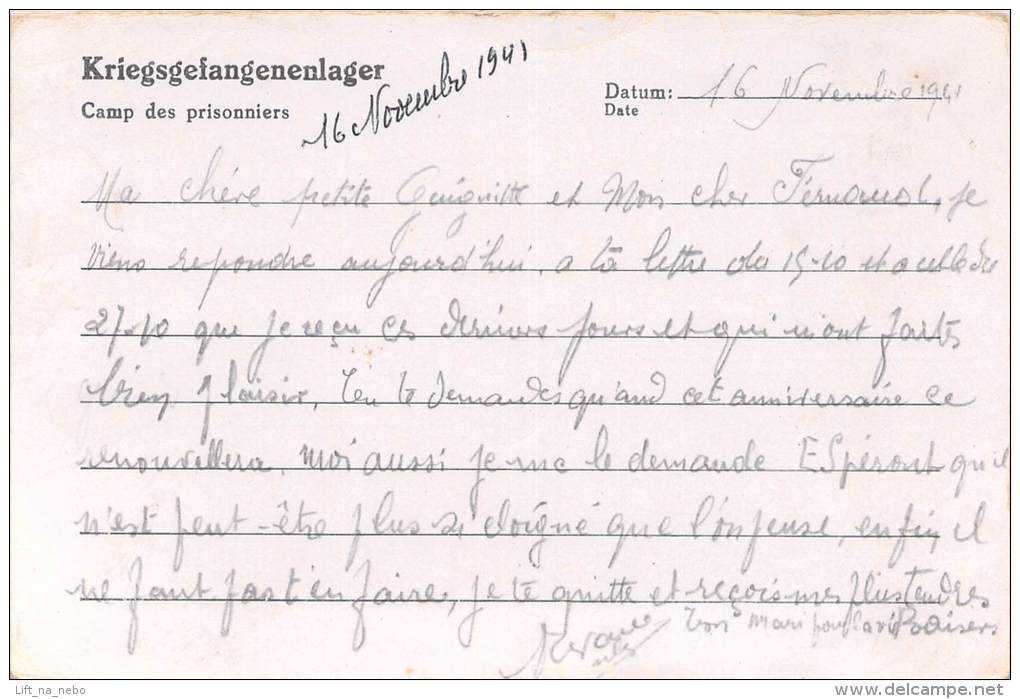 Kriegsgefangenenlager
Camp des prisonniers
16 Novembre 1941
Datum: 16 Novembre 1941
Date
Ma chére petite Guiguitte et Mon cher Fernand, je
viens repondre aujourd'hui a ta lettre du 15-10 et a celle du
27-10 que je reçu ces derniers jours et qui m'ont faits
bien plaisir, Tu te demandes quand cet anniversaire ce
renouvellera, moi aussi je me le demande Espéront qu'il
n'est peut-être plus si eloigné que l'on pense, enfin il
ne faut pas t'en faire, je te quitte et reçois mes plus tendres
Baisers
Ton mari pour la vie
Lift_na_nebo
www.delcampe.net